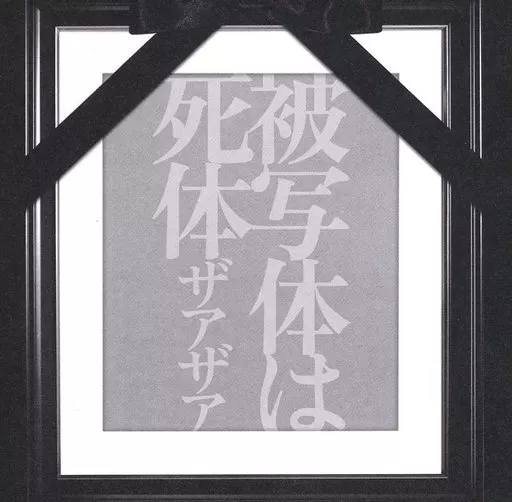 被写体は
死体
ザアザア